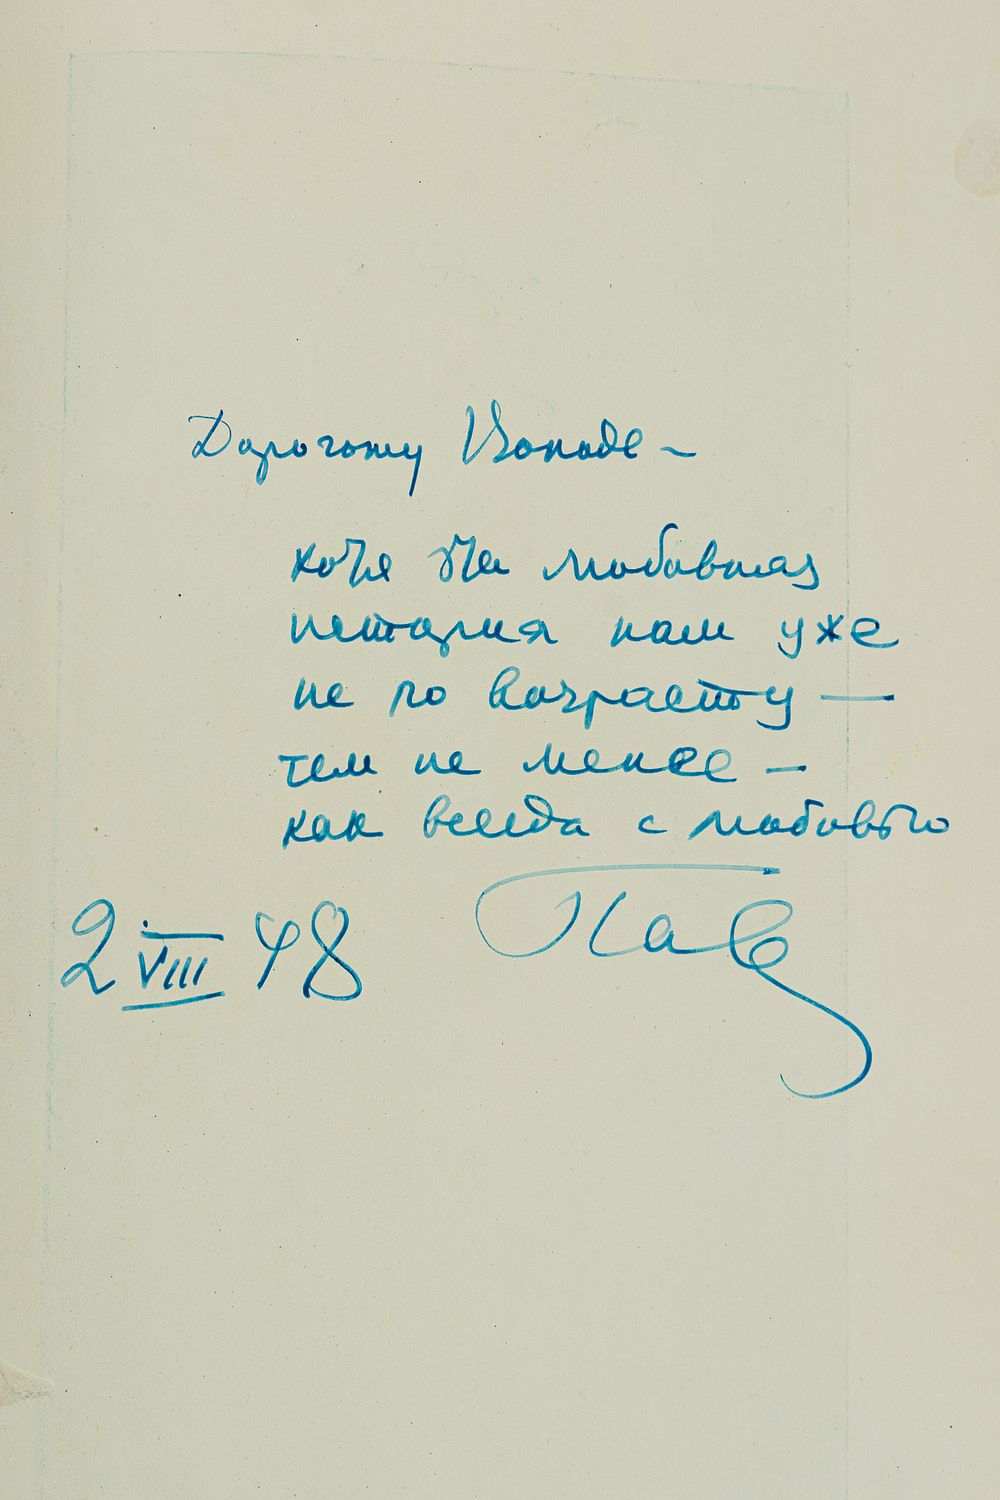 Дорогому Володе –
хотя эта любовная
история нам уже
не по возрасту —
тем не менее –
как всегда с любовью
2 VIII 48